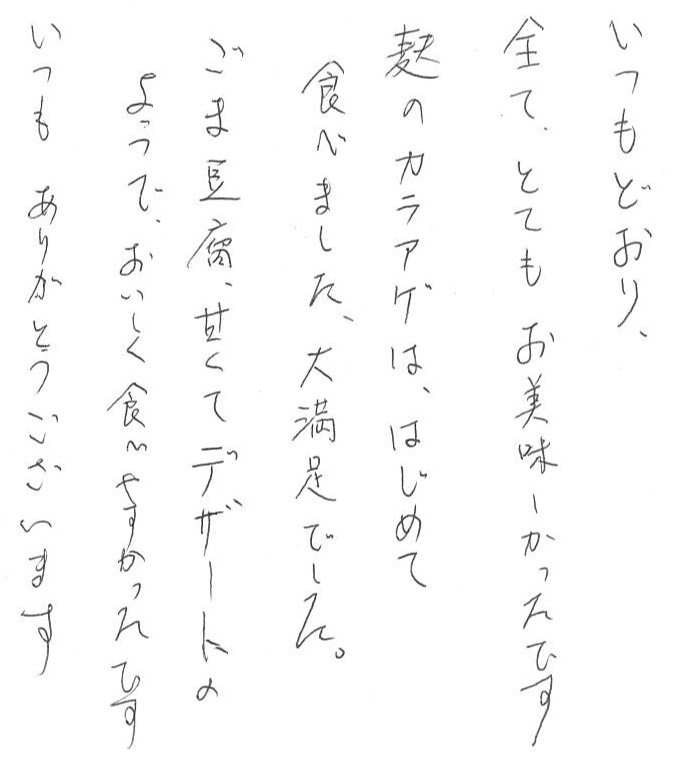 いつもどおり、
全て、とても お美味しかったです
麸のカラアゲは、はじめて
食べました、大満足でした。
ごま豆腐、甘くてデザートの
ようで、おいしく食べやすかったです
いつも ありがとうございます